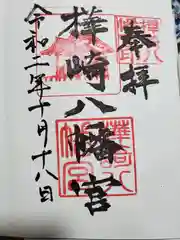 奉拝
樺崎八幡宮
令和二年十月十八日